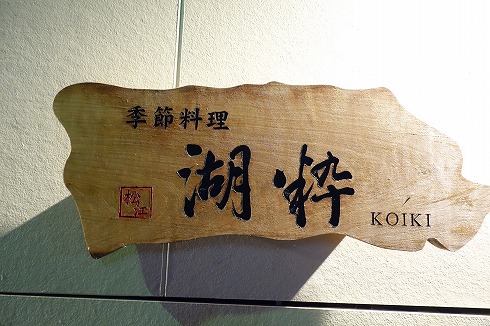 季節料理
湖粋
KOIKI
松江